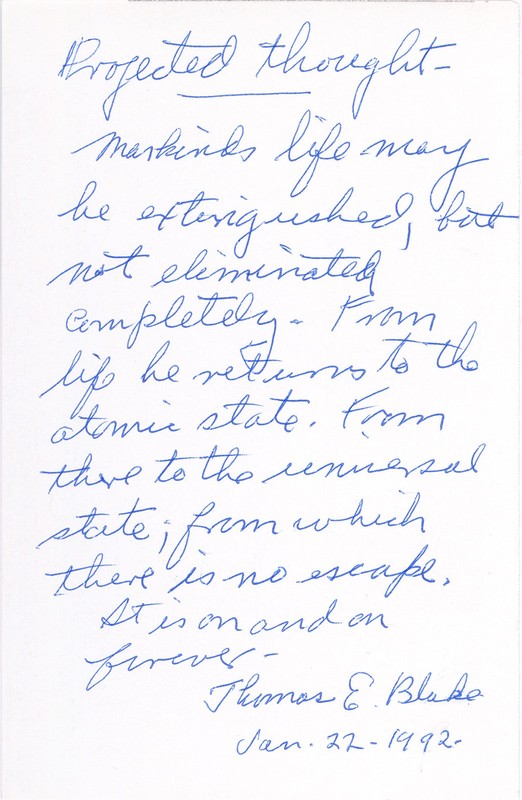 Projected thought-
Mankinds life may
be extinguished, but
not eliminated
completely. From
life he returns to the
atomic state. From
there to the universal
state; from which
there is no escape.
It is on and on
forever-
Thomas E. Blake
Jan. 22-1992.